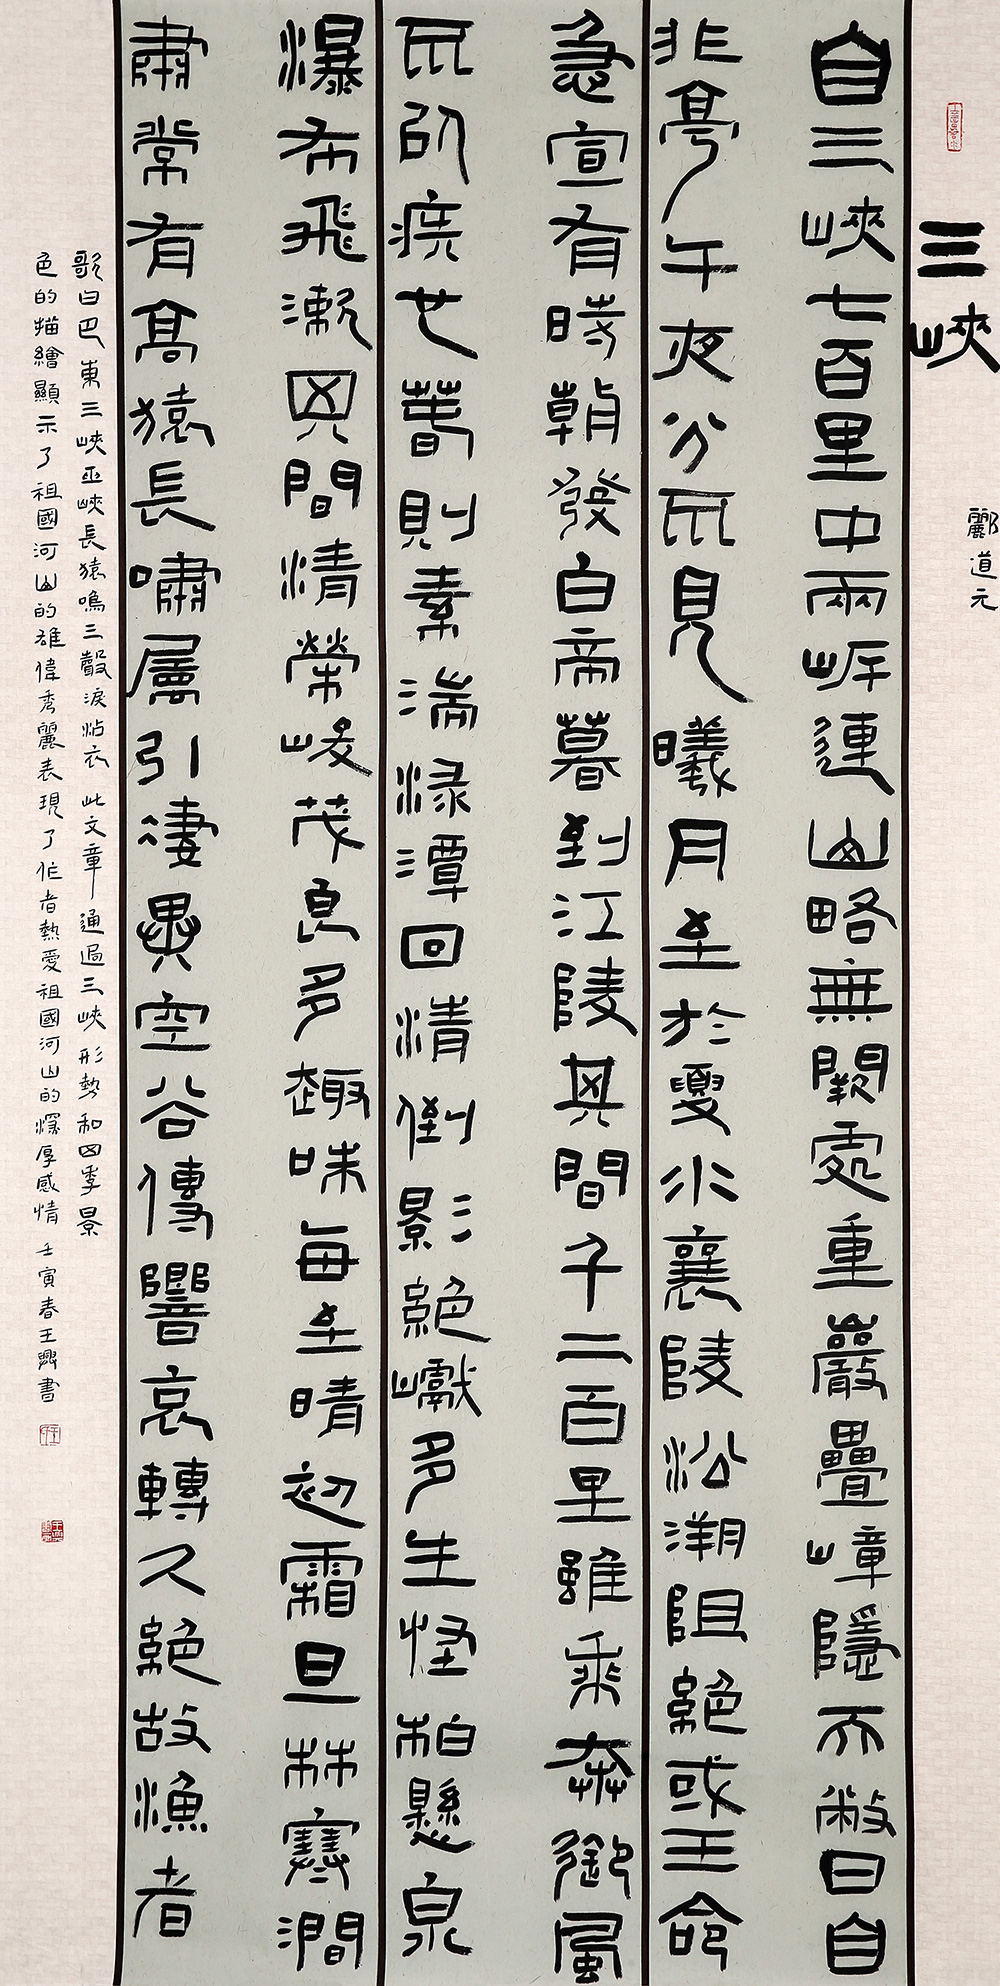 三峽
酈道元
自三峽七百里中兩岸連山略無闕處重巖疊嶂隱天蔽日自
非亭午夜分不見曦月至於夏水襄陵沿溯阻絕或王命
急宣有時朝發白帝暮到江陵其間千二百里雖乘奔御風
不以疾也春則素湍淥潭回清倒影絕巘多生怪柏懸泉
瀑布飛漱其間清榮峻茂良多趣味每至晴初霜旦林寒澗
肅常有高猿長嘯屬引淒異空谷傳響哀轉久絕故漁者
歌曰巴東三峽巫峽長猿鳴三聲淚沾衣此文章通過三峽形勢和四季景
色的描繪顯示了祖國河山的雄偉秀麗表現了作者熱愛祖國河山的深厚感情 壬寅春王興書